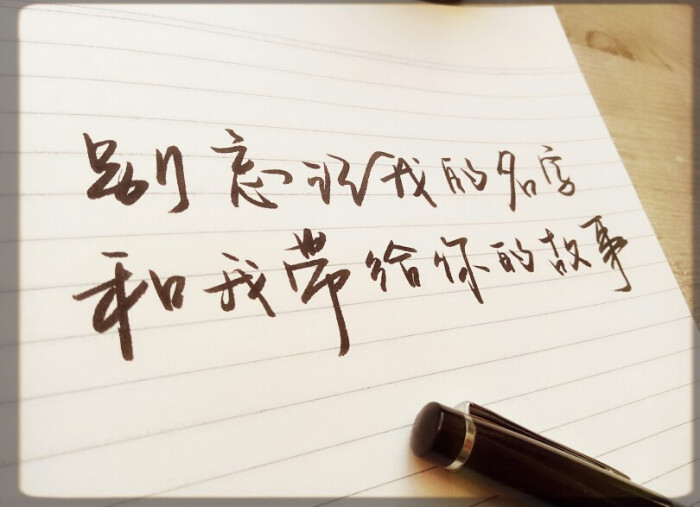 别忘记我的名字
和我带给你的故事